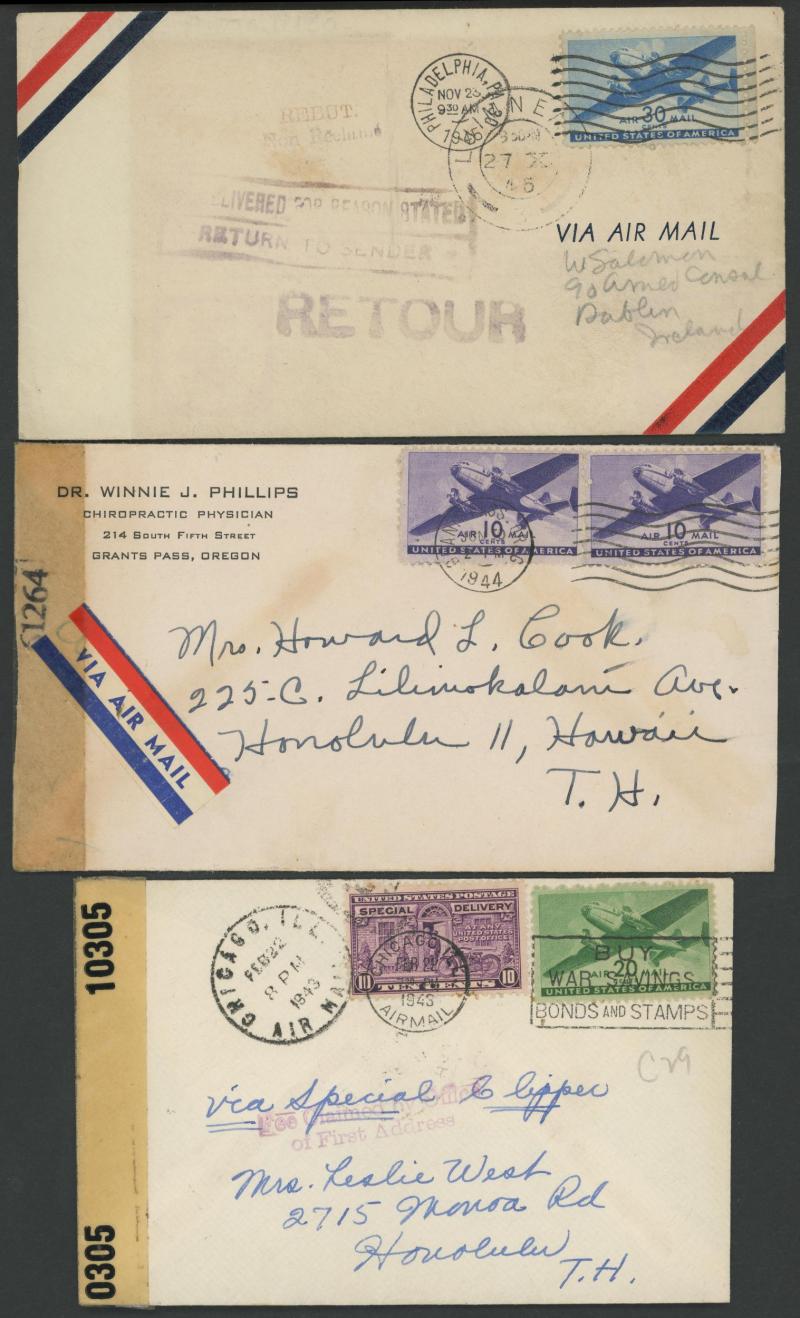 REBUT.
Non Réclamé
PHILADELPHIA, PA.
NOV 23
9 30 AM
1946
27
46
30
AIR MAIL
CENTS
UNITED STATES OF AMERICA
FOR REASON STATED
RETURN TO SENDER
RETOUR
VIA AIR MAIL
W Salomon
Dublin
Ireland
DR. WINNIE J. PHILLIPS
CHIROPRACTIC PHYSICIAN
214 SOUTH FIFTH STREET
GRANTS PASS, OREGON
10
AIR MAIL
CENTS
UNITED STATES OF AMERICA
10
AIR MAIL
CENTS
UNITED STATES OF AMERICA
1944
61264
VIA AIR MAIL
Mrs. Howard L. Cook.
225-C. Liliuokalani Ave.
Honolulu 11, Hawaii
T. H.
10305
0305
CHICAGO, ILL.
FEB 22
8 PM
1943
AIR MAIL
UNITED STATES POSTAGE
SPECIAL DELIVERY
AT ANY
UNITED STATES
POST OFFICE
10 TEN CENTS 10
CHICAGO, ILL.
FEB 22
1943
AIRMAIL
20
AIR MAIL
UNITED STATES OF AMERICA
BUY
WAR SAVINGS
BONDS AND STAMPS
C29
via Special Clipper
Fee Claimed by Office
of First Address
Mrs. Leslie West
2715 Manoa Rd
Honolulu
T.H.